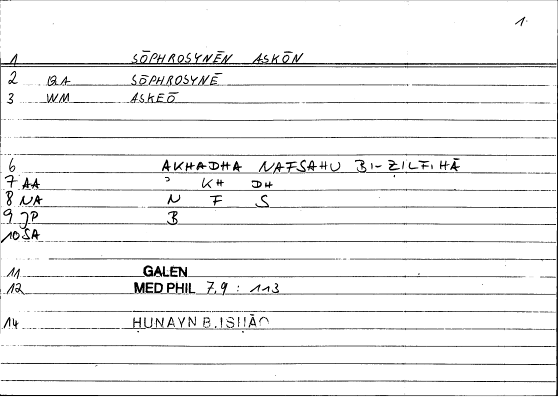 1.
1 SŌPHROSYNĒN ASKŌN
2 QA SŌPHROSYNĒ
3 WM ASKEŌ
6 AKHADHA NAFSAHU BI-ZILFIHĀ
7 AA ʾ KH DH
8 NA N F S
9 JP B
10 SA
11 GALEN
12 MED PHIL 7,9 : 113
14 ḤUNAYN B. ISḤĀQ